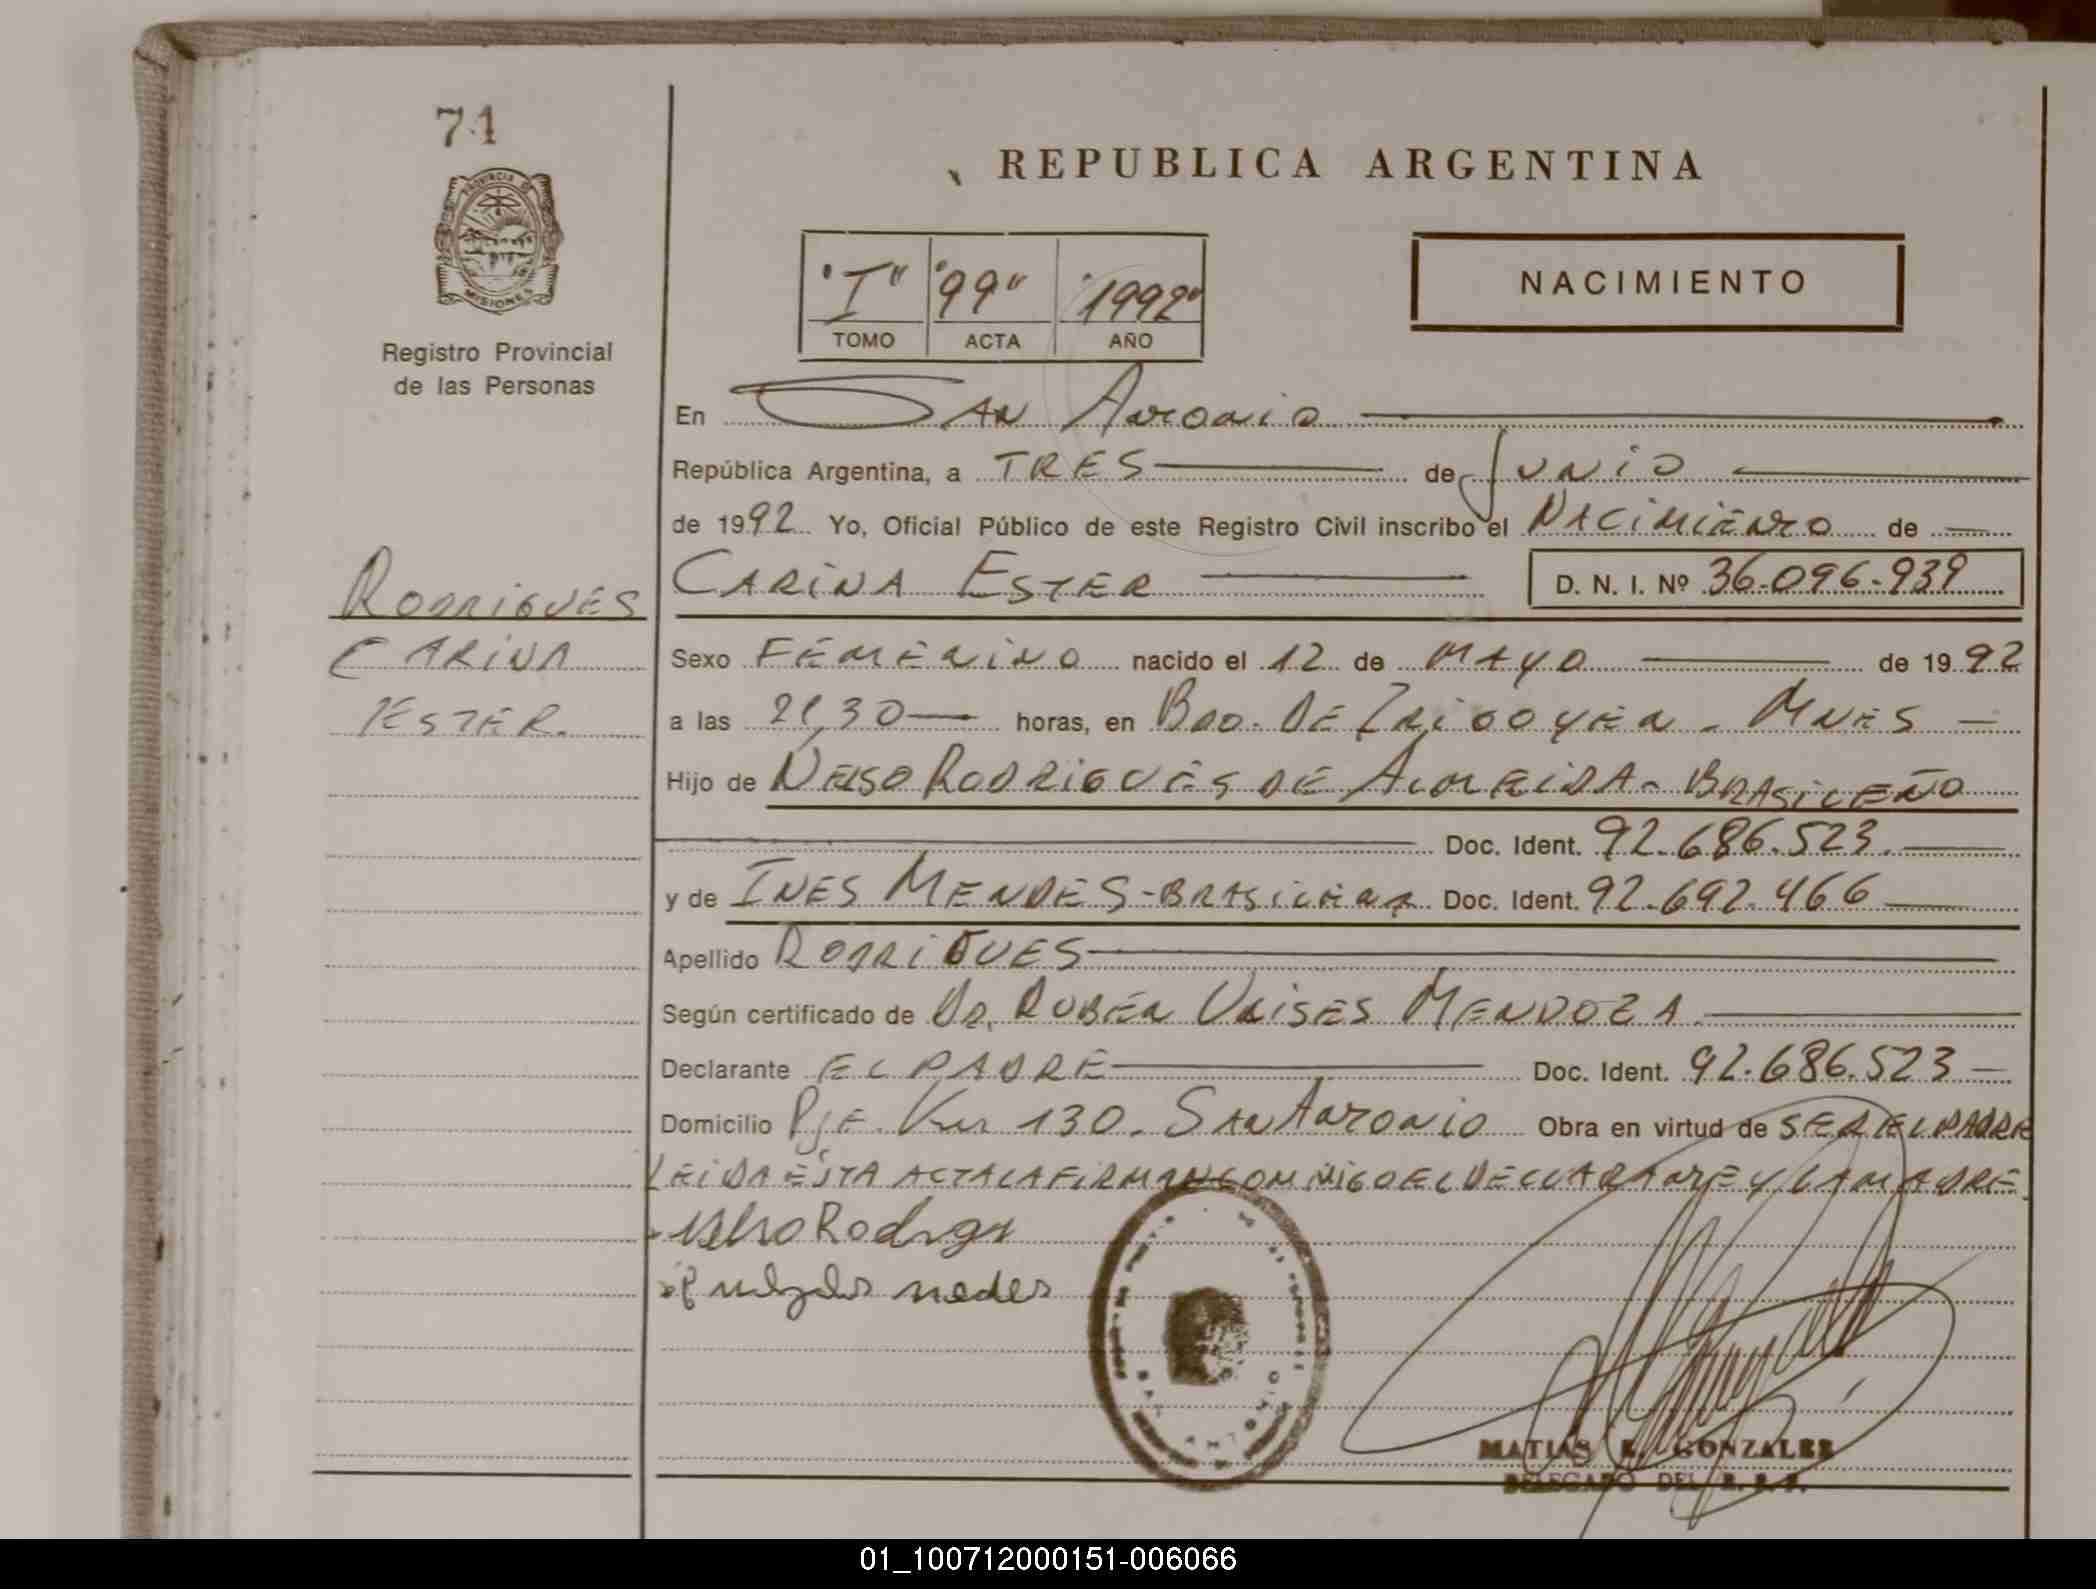 74
REPUBLICA ARGENTINA
PROVINCIA DE
MISIONES
Registro Provincial
de las Personas
"I" "99" "1992"
TOMO ACTA AÑO
NACIMIENTO
En SAN ANTONIO
República Argentina, a TRES de JUNIO
de 1992 Yo, Oficial Público de este Registro Civil inscribo el NACIMIENTO de
RODRIGUES
CARINA
ESTER.
CARINA ESTER D. N. I. Nº 36.096.939
Sexo FEMENINO nacido el 12 de MAYO de 1992
a las 21,30 horas, en BDO. DE IRIGOYEN - MNES
Hijo de NELSO RODRIGUES DE ALMEIDA - BRASILEÑO
Doc. Ident. 92.686.523.
y de INES MENDES - BRASILEÑA Doc. Ident. 92.692.466
Apellido RODRIGUES
Según certificado de DR. RUBEN ULISES MENDOZA
Declarante EL PADRE Doc. Ident. 92.686.523
Domicilio PJE. Km 130. SAN ANTONIO Obra en virtud de SER EL PADRE
LEIDA ESTA ACTA LA FIRMAN CONMIGO EL DECLARANTE Y LA MADRE.
Nelso Rodrigu
MATIAS R. GONZALEZ
DELEGADO DEL R. P. P.
01_100712000151-006066